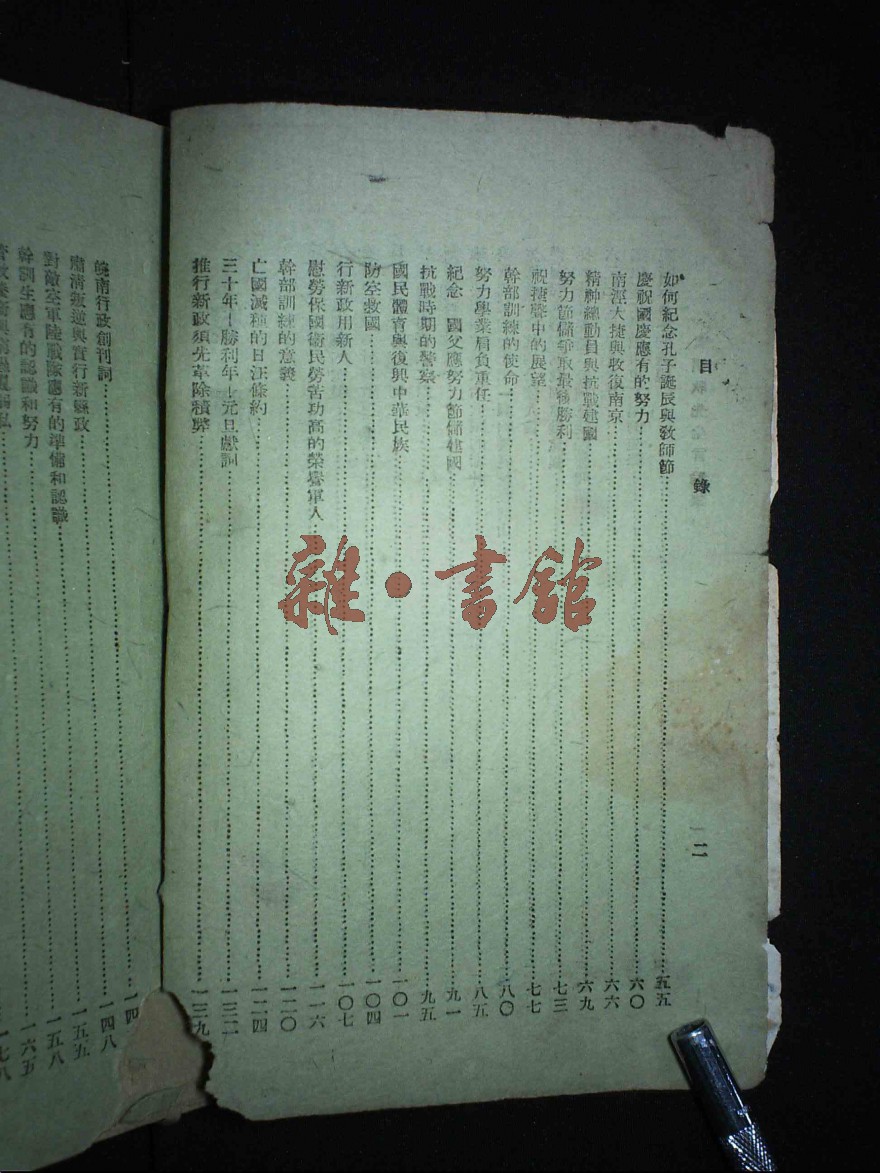 目錄
二
如何紀念孔子誕辰與教師節 五五
慶祝國慶應有的努力 六〇
南涇大捷與收復南京 六六
精神總動員與抗戰建國 六九
努力節儲爭取最後勝利 七三
祝捷聲中的展望 七七
幹部訓練的使命 八〇
努力學業肩負重任 八五
紀念 國父應努力節儲建國 九一
抗戰時期的警察 九五
國民體育與復興中華民族 一〇一
防空救國 一〇四
行新政用新人 一〇七
慰勞保國衛民勞苦功高的榮譽軍人 一一六
幹部訓練的意義 一二〇
亡國滅種的日汪條約 一二四
三十年—勝利年—元旦獻詞 一三二
推行新政須先革除積弊 一三九
皖南行政創刊詞 一四
肅清叛逆與實行新縣政 一四八
對敵空軍陸戰隊應有的準備和認識 一五五
幹訓生應有的認識和努力 一五八
一六五
一七八
雜·書館